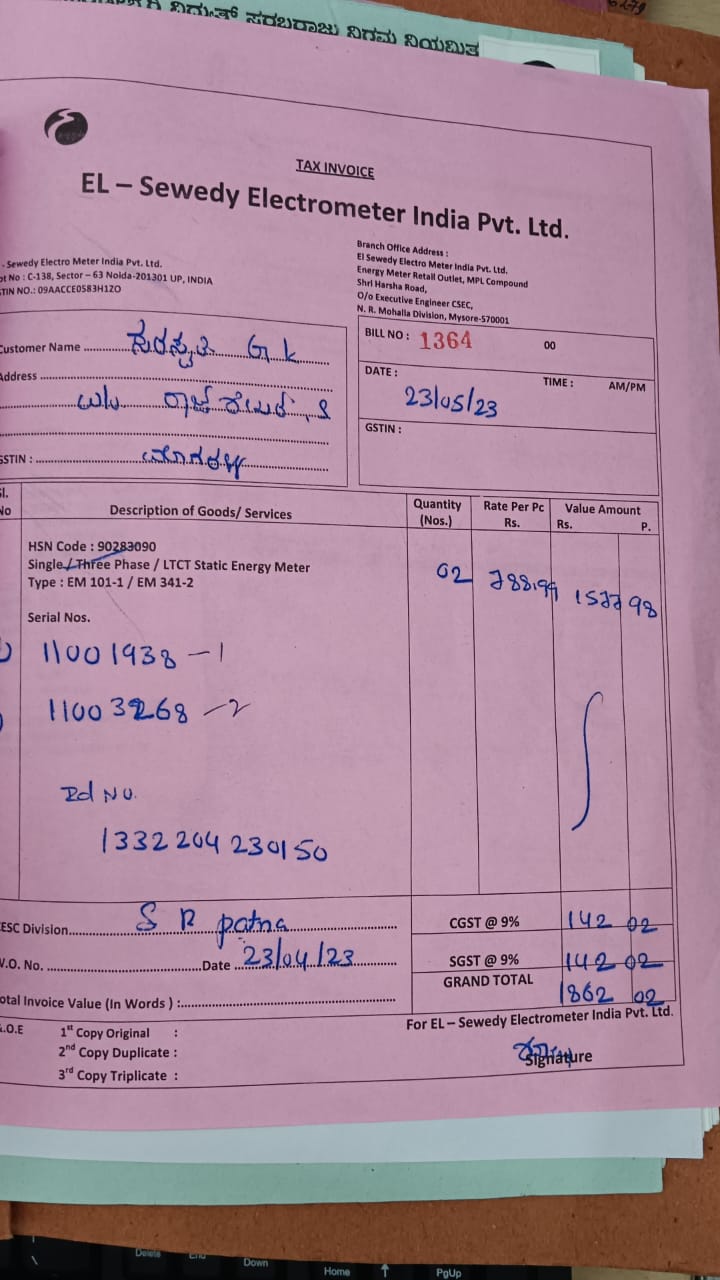 ವಿದ್ಯುತ್ ಸರಬರಾಜು ನಿಗಮ ನಿಯಮಿತ
TAX INVOICE
EL – Sewedy Electrometer India Pvt. Ltd.
- Sewedy Electro Meter India Pvt. Ltd.
ot No : C-138, Sector – 63 Noida-201301 UP, INDIA
STIN NO.: 09AACCE0583H1ZO
Branch Office Address :
El Sewedy Electro Meter India Pvt. Ltd.
Energy Meter Retail Outlet, MPL Compound
Shri Harsha Road,
O/o Executive Engineer CSEC,
N. R. Mohalla Division, Mysore-570001
Customer Name ಸರಸ್ವತಿ G K
Address
GSTIN :
BILL NO : 1364 00
DATE : 23/05/23 TIME : AM/PM
GSTIN :
Sl. No Description of Goods/ Services Quantity (Nos.) Rate Per Pc Rs. Value Amount Rs. P.
HSN Code : 90283090
Single / Three Phase / LTCT Static Energy Meter
Type : EM 101-1 / EM 341-2
02 788.99 1577 98
Serial Nos.
11001938 – 1
11003268 – 2
Id No.
1332204230150
CESC Division S R patna
W.O. No. Date 23/04/23
Total Invoice Value (In Words ) :
CGST @ 9% 142 02
SGST @ 9% 142 02
GRAND TOTAL 1862 02
For EL – Sewedy Electrometer India Pvt. Ltd.
&.O.E 1st Copy Original :
2nd Copy Duplicate :
3rd Copy Triplicate :
Signature
Delete End Down Home ↑ PgUp